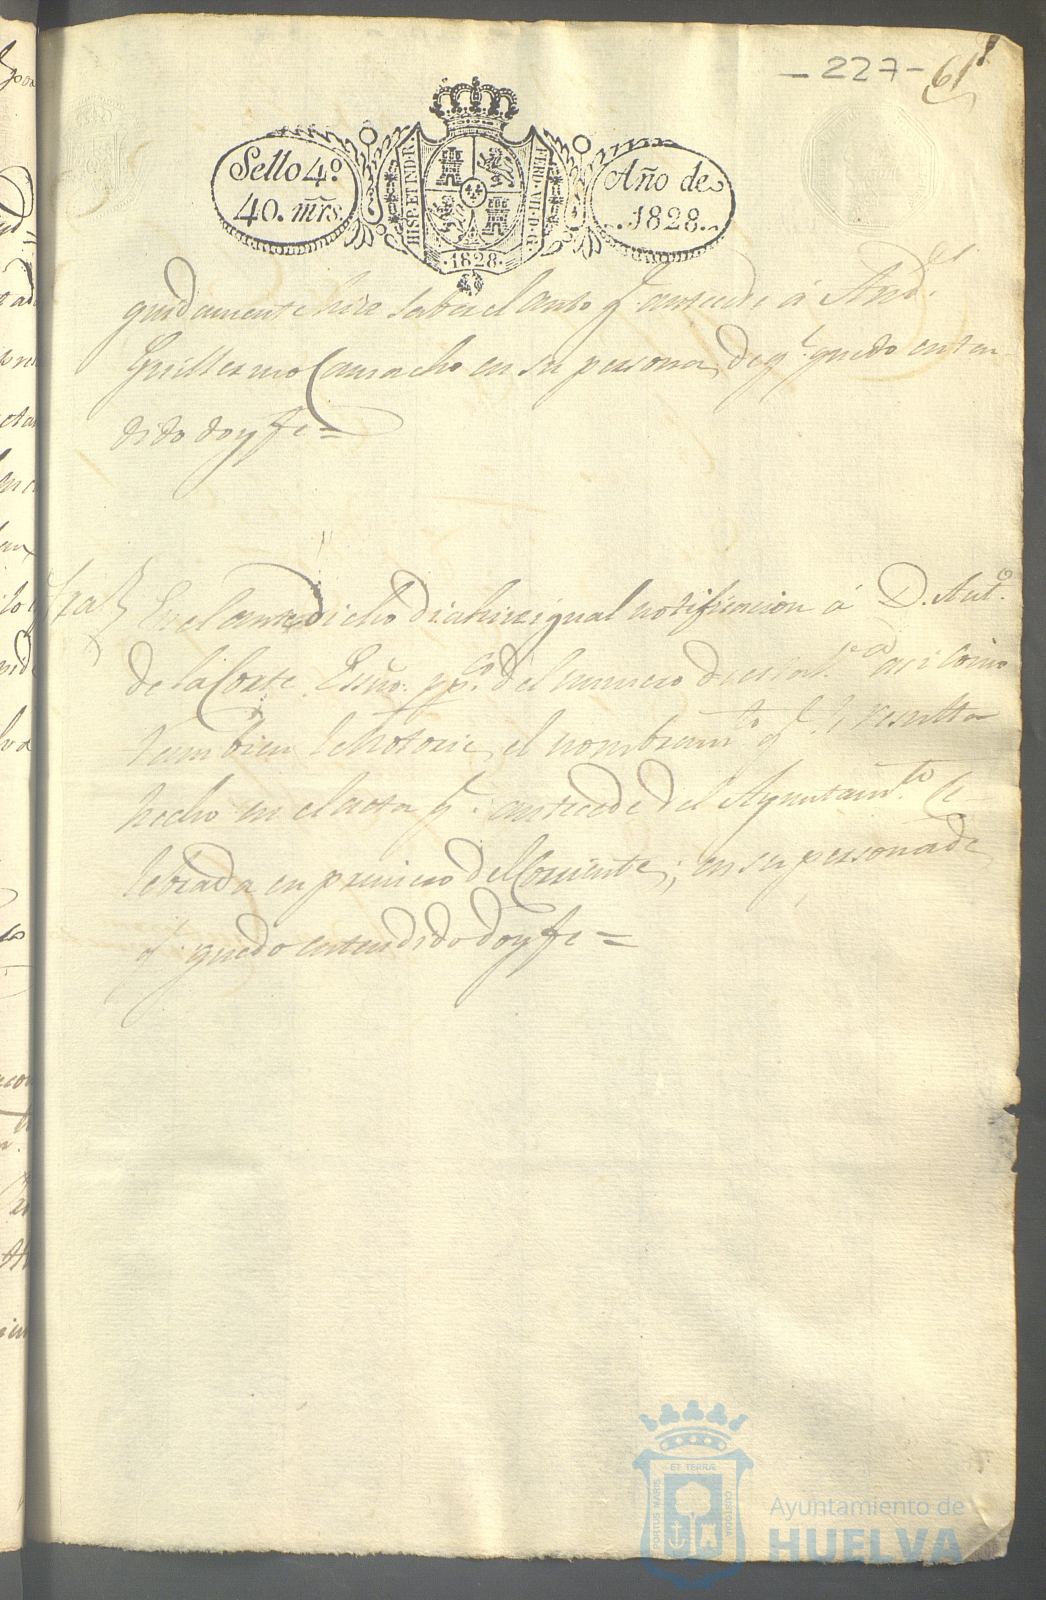 - 227 - 61
Sello 4º
40. mrs.
HISP. ET IND. R.
FERD. VII. D. G.
1828
Año de
1828.
guidamente hice saber el auto q. antecede a And.es
Guillermo Camacho en su persona, de q.e quedo enten
dido doy fe =
Otra} En el antedicho dia hice igual notificacion á D. Ant.o
de la Corte Essno. pp.co del numero de esta así como
tambien le notorie, el nombram.to q.e le resulta
hecho en el acta q. antecede del Ayuntam.to Ce-
lebrada en primero del Corriente; en su persona de
q. quedo entendido doy fe =
PORTUS MARIS
ET TERRÆ
CUSTODIA
Ayuntamiento de
HUELVA